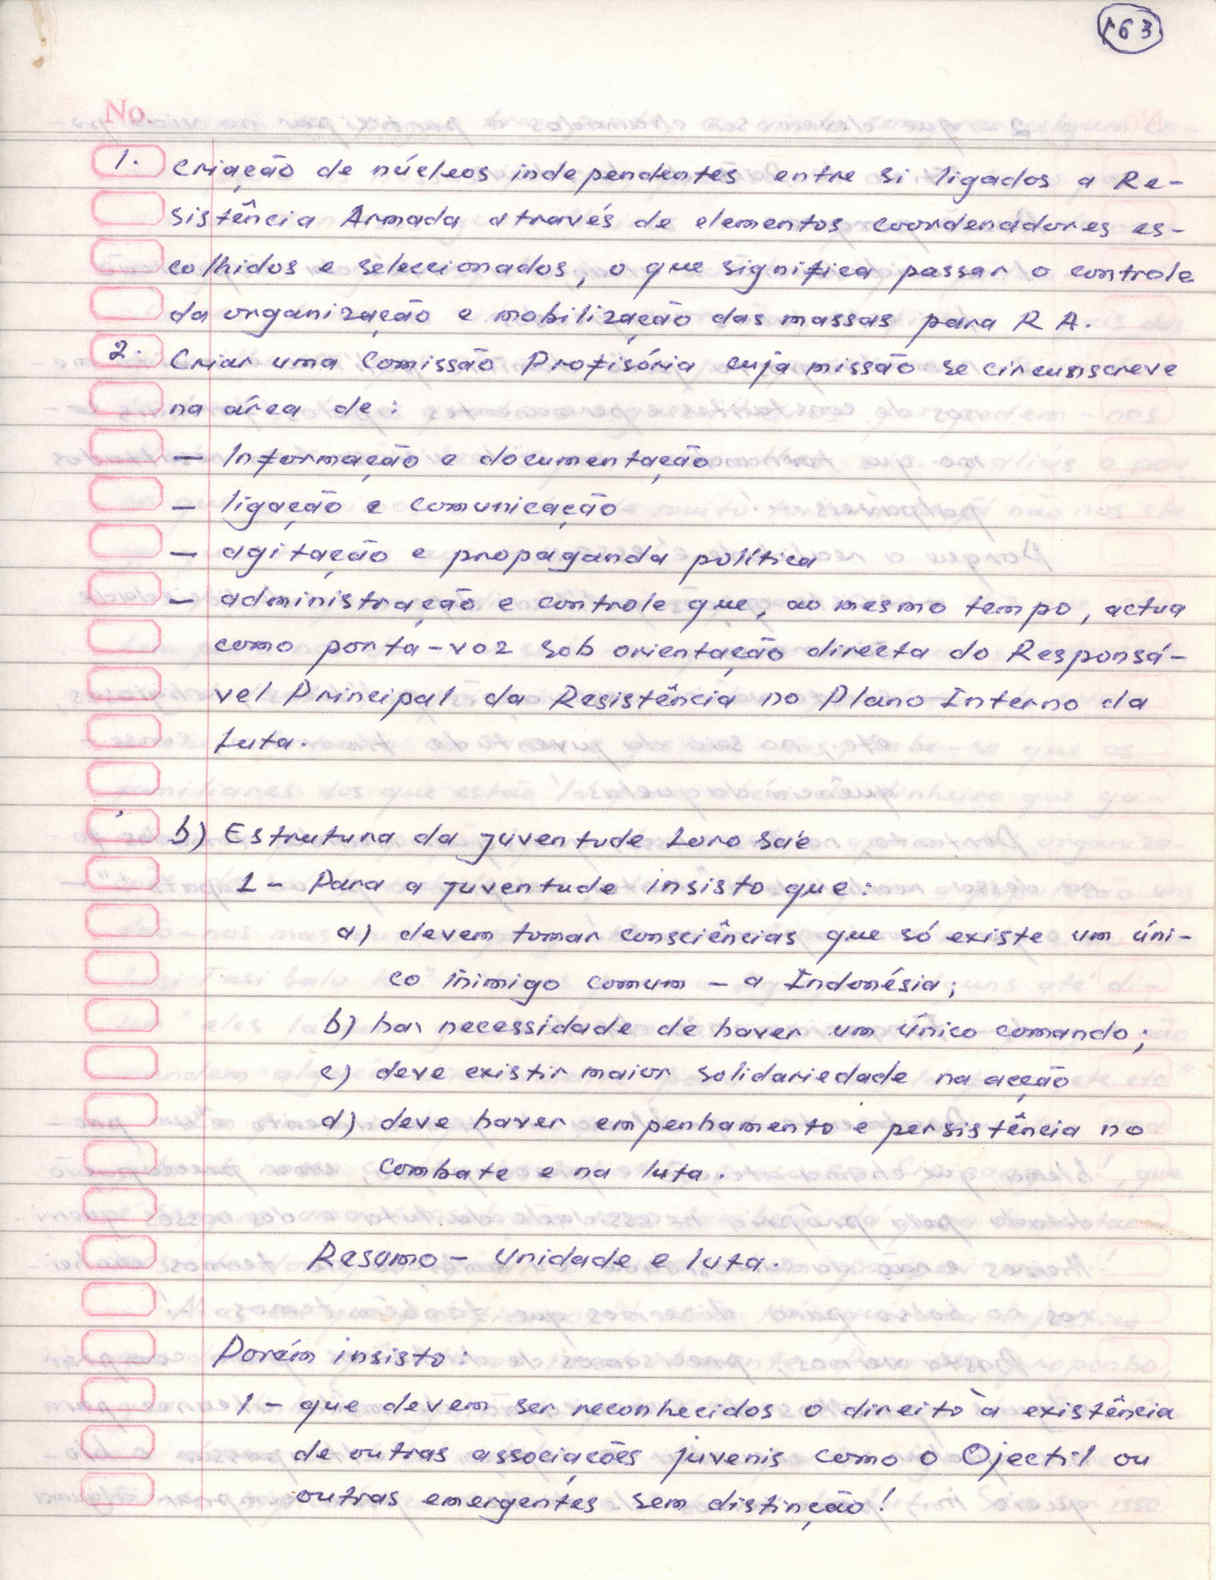 163
No.
1. Criação de núcleos independentes entre si ligados a Re-
sistência Armada através de elementos coordenadores es-
colhidos e seleccionados, o que significa passar o controle
da organização e mobilização das massas para R A.
2. Criar uma Comissão Profisória cuja missão se circunscreve
na área de:
— Informação e documentação
— ligação e comunicação
— agitação e propaganda política
— administração e controle que, ao mesmo tempo, actua
como porta-voz sob orientação directa do Responsá-
vel Principal da Resistência no Plano Interno da
Luta.
b) Estrutura da juventude Loro Sa'e
1 - Para a juventude insisto que:
a) devem tomar consciências que só existe um úni-
co inimigo comum - a Indonésia;
b) há necessidade de haver um único comando;
c) deve existir maior solidariedade na acção
d) deve haver empenhamento e persistência no
combate e na luta.
Resumo - Unidade e luta.
Porém insisto:
1 - que devem ser reconhecidos o direito à existência
de outras associações juvenis como o Ojectil ou
outras emergentes sem distinção!